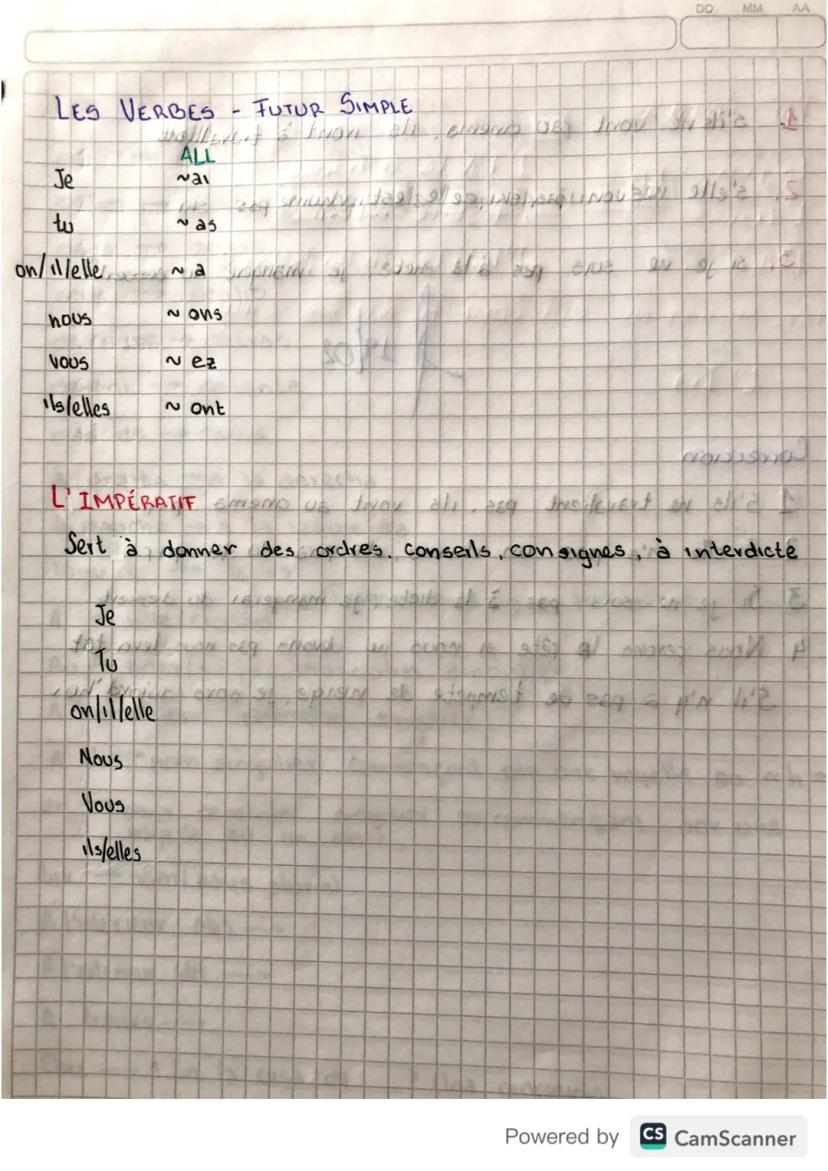 DD MM AA
LES VERBES - FUTUR SIMPLE
ALL
Je ~ai
tu ~as
on/il/elle ~a
nous ~ons
vous ~ez
ils/elles ~ont
L'IMPÉRATIF
Sert à donner des ordres, conseils, consignes, à interdicte
Je
Tu
on/il/elle
Nous
Vous
ils/elles
Powered by CS CamScanner